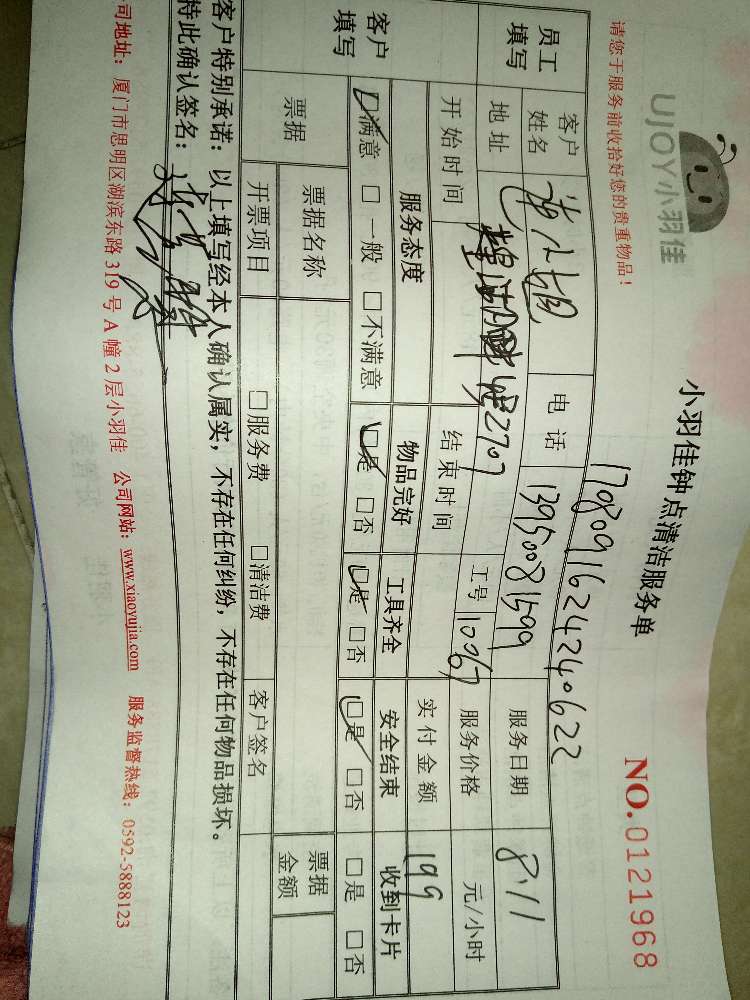 UJOY小羽佳
小羽佳钟点清洁服务单
NO.0121968
请您于服务前收拾好您的贵重物品！
1708091624240622
员工填写 客户姓名 小姐 电话 13950081599 服务日期 8.11
地址 2707 工号 10067 服务价格 元/小时
开始时间 结束时间 实付金额 199
客户填写 服务态度 物品完好 工具齐全 安全结束 收到卡片
☑满意 □一般 □不满意 ☑是 □否 ☑是 □否 ☑是 □否 □是 □否
票据 票据名称 票据金额
开票项目 □服务费 □清洁费 客户签名
客户特别承诺：以上填写经本人确认属实，不存在任何纠纷，不存在任何物品损坏。
特此确认签名：
司地址：厦门市思明区湖滨东路319号A幢2层小羽佳 公司网站：www.xiaoyujia.com 服务监督热线：0592-5888123